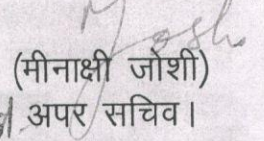 (मीनाक्षी जोशी)
अपर सचिव।